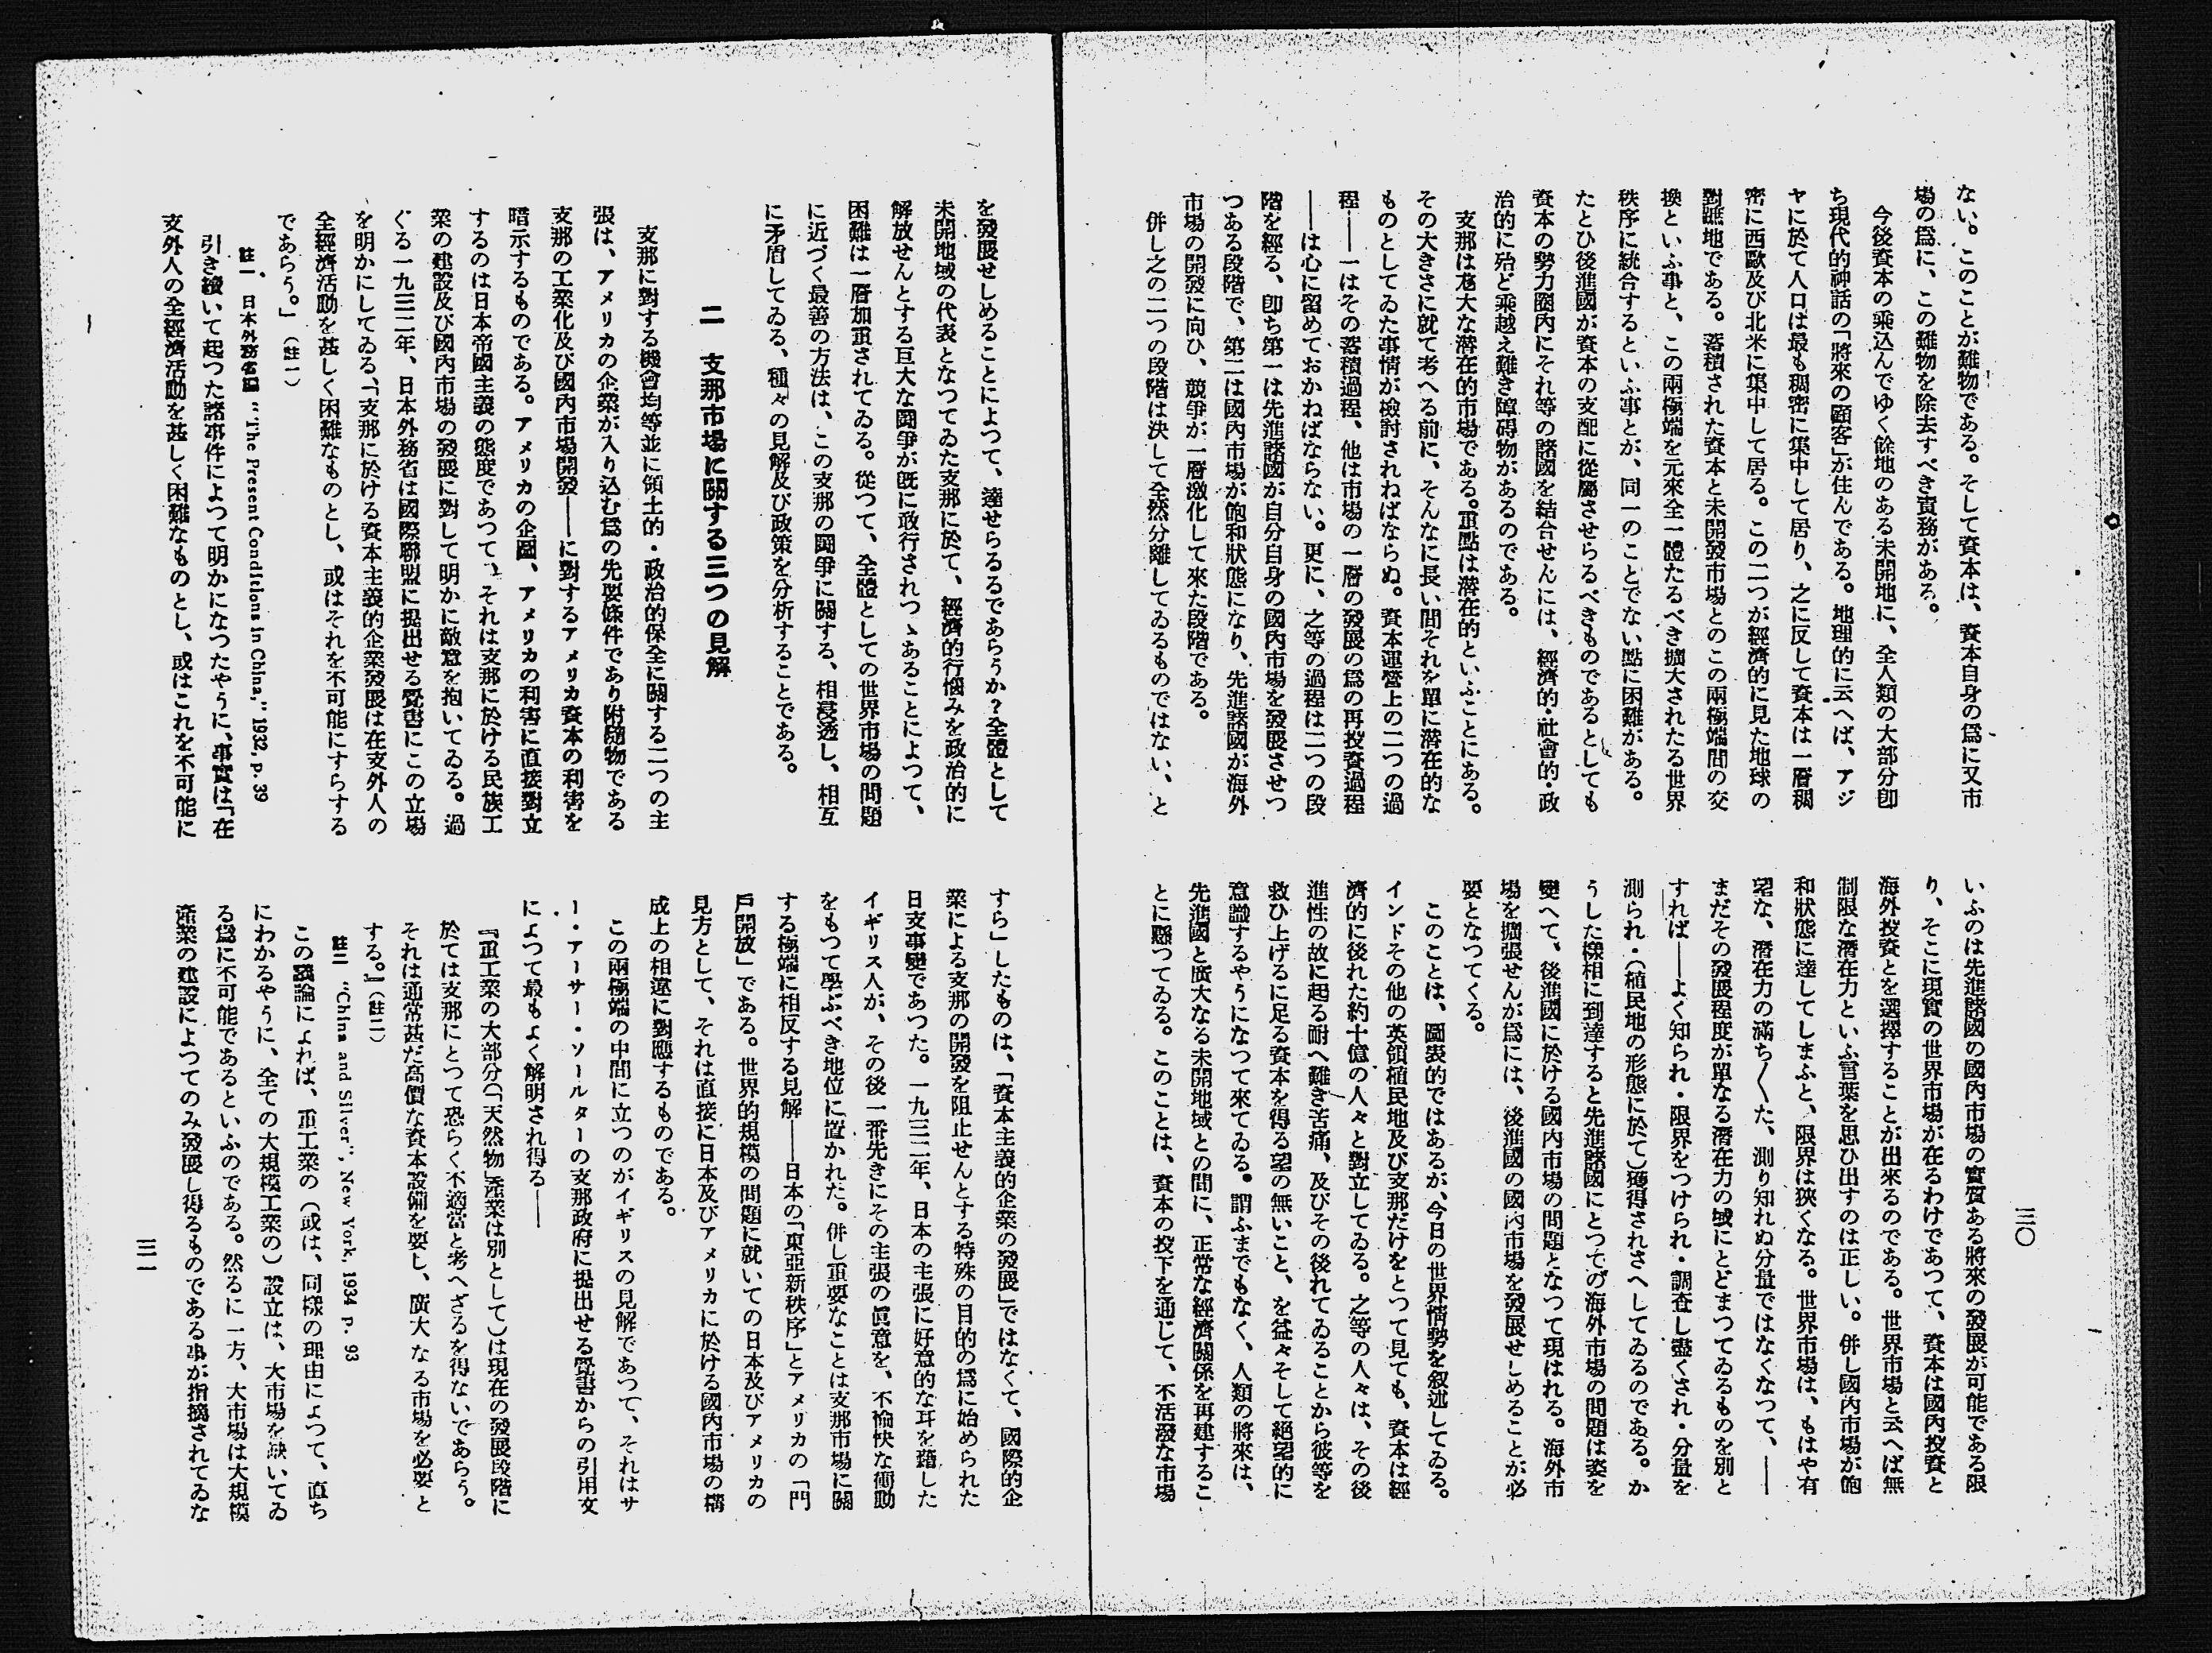 ない。このことが難物である。そして資本は、資本自身の爲に又市
場の爲に、この難物を除去すべき實務がある。
今後資本の乘込んでゆく餘地のある未開地に、全人類の大部分卽
ち現代的神話の「將來の顧客」が住んである。地理的に云へば、アジ
ヤに於て人口は最も稠密に集中して居り、之に反して資本は一層稠
密に西歐及び北米に集中して居る。この二つが經濟的に見た地球の
對蹠地である。蓄積された資本と未開發市場とのこの兩極端間の交
換といふ事と、この兩極端を元來全一體たるべき擴大されたる世界
秩序に統合するといふ事とが、同一のことでない點に困難がある。
たとひ後進國が資本の支配に從屬させらるべきものであるとしても
資本の勢力圈內にそれ等の諸國を結合せんには、經濟的・社會的・政
治的に殆ど乘越え難き障碍物があるのである。
支那は尨大な潜在的市場である。重點は潜在的といふことにある。
その大きさに就て考へる前に、そんなに長い間それを單に潜在的な
ものとしてゐた事情が檢討されねばならぬ。資本運營上の二つの過
程――一はその蓄積過程、他は市場の一層の發展の爲の再投資過程
――は心に留めておかねばならない。更に、之等の過程は二つの段
階を經る、卽ち第一は先進諸國が自分自身の國內市場を發展させつ
つある段階で、第二は國內市場が飽和狀態になり、先進諸國が海外
市場の開發に向ひ、競爭が一層激化して來た段階である。
併し之の二つの段階は決して全然分離してゐるものではない、と
いふのは先進諸國の國內市場の實質ある將來の發展が可能である限
り、そこに現實の世界市場が在るわけであつて、資本は國內投資と
海外投資とを選擇することが出來るのである。世界市場と云へば無
制限な潜在力といふ言葉を思ひ出すのは正しい。併し國內市場が飽
和狀態に達してしまふと、限界は狹くなる。世界市場は、もはや有
望な、潜在力の滿ち〱た、測り知れぬ分量ではなくなつて、――
まだその發展程度が單なる潜在力の域にとどまつてゐるものを別と
すれば――よく知られ・限界をつけられ・調査し盡くされ・分量を
測られ・(植民地の形態に於て)獲得されさへしてゐるのである。か
うした樣相に到達すると先進諸國にとつての海外市場の問題は姿を
變へて、後進國に於ける國內市場の問題となつて現はれる。海外市
場を擴張せんが爲には、後進國の國內市場を發展せしめることが必
要となつてくる。
このことは、圖表的ではあるが、今日の世界情勢を叙述してゐる。
インドその他の英領植民地及び支那だけをとつて見ても、資本は經
濟的に後れた約十億の人々と對立してゐる。之等の人々は、その後
進性の故に起る耐へ難き苦痛、及びその後れてゐることから彼等を
救ひ上げるに足る資本を得る望の無いこと、を益々そして絕望的に
意識するやうになつて來てゐる。謂ふまでもなく、人類の將來は、
先進國と廣大なる未開地域との間に、正常な經濟關係を再建するこ
とに懸つてゐる。このことは、資本の投下を通じて、不活潑な市場
三〇
を發展せしめることによつて、達せらるるであらうか?全體として
未開地域の代表となつてゐた支那に於て、經濟的行惱みを政治的に
解放せんとする巨大な鬪爭が既に敢行されつゝあることによつて、
困難は一層加重されてゐる。從つて、全體としての世界市場の問題
に近づく最善の方法は、この支那の鬪爭に關する、相浸透し、相互
に矛盾してゐる、種々の見解及び政策を分析することである。
二 支那市場に關する三つの見解
支那に對する機會均等並に領土的・政治的保全に關する二つの主
張は、アメリカの企業が入り込む爲の先要條件であり附隨物である
支那の工業化及び國內市場開發――に對するアメリカ資本の利害を
暗示するものである。アメリカの企圖、アメリカの利害に直接對立
するのは日本帝國主義の態度であつて、それは支那に於ける民族工
業の建設及び國內市場の發展に對して明かに敵意を抱いてゐる。過
ぐる一九三二年、日本外務省は國際聯盟に提出せる覺書にこの立場
を明かにしてゐる、「支那に於ける資本主義的企業發展は在支外人の
全經濟活動を甚しく困難なものとし、或はそれを不可能にすらする
であらう。」(註一)
註一、日本外務省編 “The Present Conditions in China,” 1932, p. 39
引き續いて起つた諸事件によつて明かになつたやうに、事實は「在
支外人の全經濟活動を甚しく困難なものとし、或はこれを不可能に
すら」したものは、「資本主義的企業の發展」ではなくて、國際的企
業による支那の開發を阻止せんとする特殊の目的の爲に始められた
日支事變であつた。一九三二年、日本の主張に好意的な耳を藉した
イギリス人が、その後一番先きにその主張の眞意を、不愉快な衝動
をもつて學ぶべき地位に置かれた。併し重要なことは支那市場に關
する極端に相反する見解――日本の「東亞新秩序」とアメリカの「門
戶開放」である。世界的規模の問題に就いての日本及びアメリカの
見方として、それは直接に日本及びアメリカに於ける國內市場の構
成上の相違に對應するものである。
この兩極端の中間に立つのがイギリスの見解であつて、それはサ
ー・アーサー・ソールターの支那政府に提出せる覺書からの引用文
によつて最もよく解明され得る――
『重工業の大部分(「天然物」產業は別として)は現在の發展段階に
於ては支那にとつて恐らく不適當と考へざるを得ないであらう。
それは通常甚だ高價な資本設備を要し、廣大なる市場を必要と
する。』(註二)
註二 “China and Silver”, New York, 1934 p. 93
この議論によれば、重工業の(或は、同樣の理由によつて、直ち
にわかるやうに、全ての大規模工業の)設立は、大市場を缺いてゐ
る爲に不可能であるといふのである。然るに一方、大市場は大規模
產業の建設によつてのみ發展し得るものである事が指摘されてゐな
三一